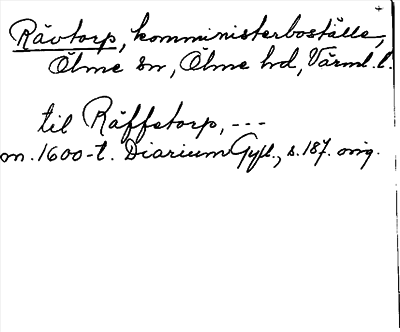 Rävtorp, komministerboställe,
Ölme sn, Ölme hd, Värml. l.
til Räffetorp, ---
om. 1600-t. Diarium Gyll., s. 187. orig.